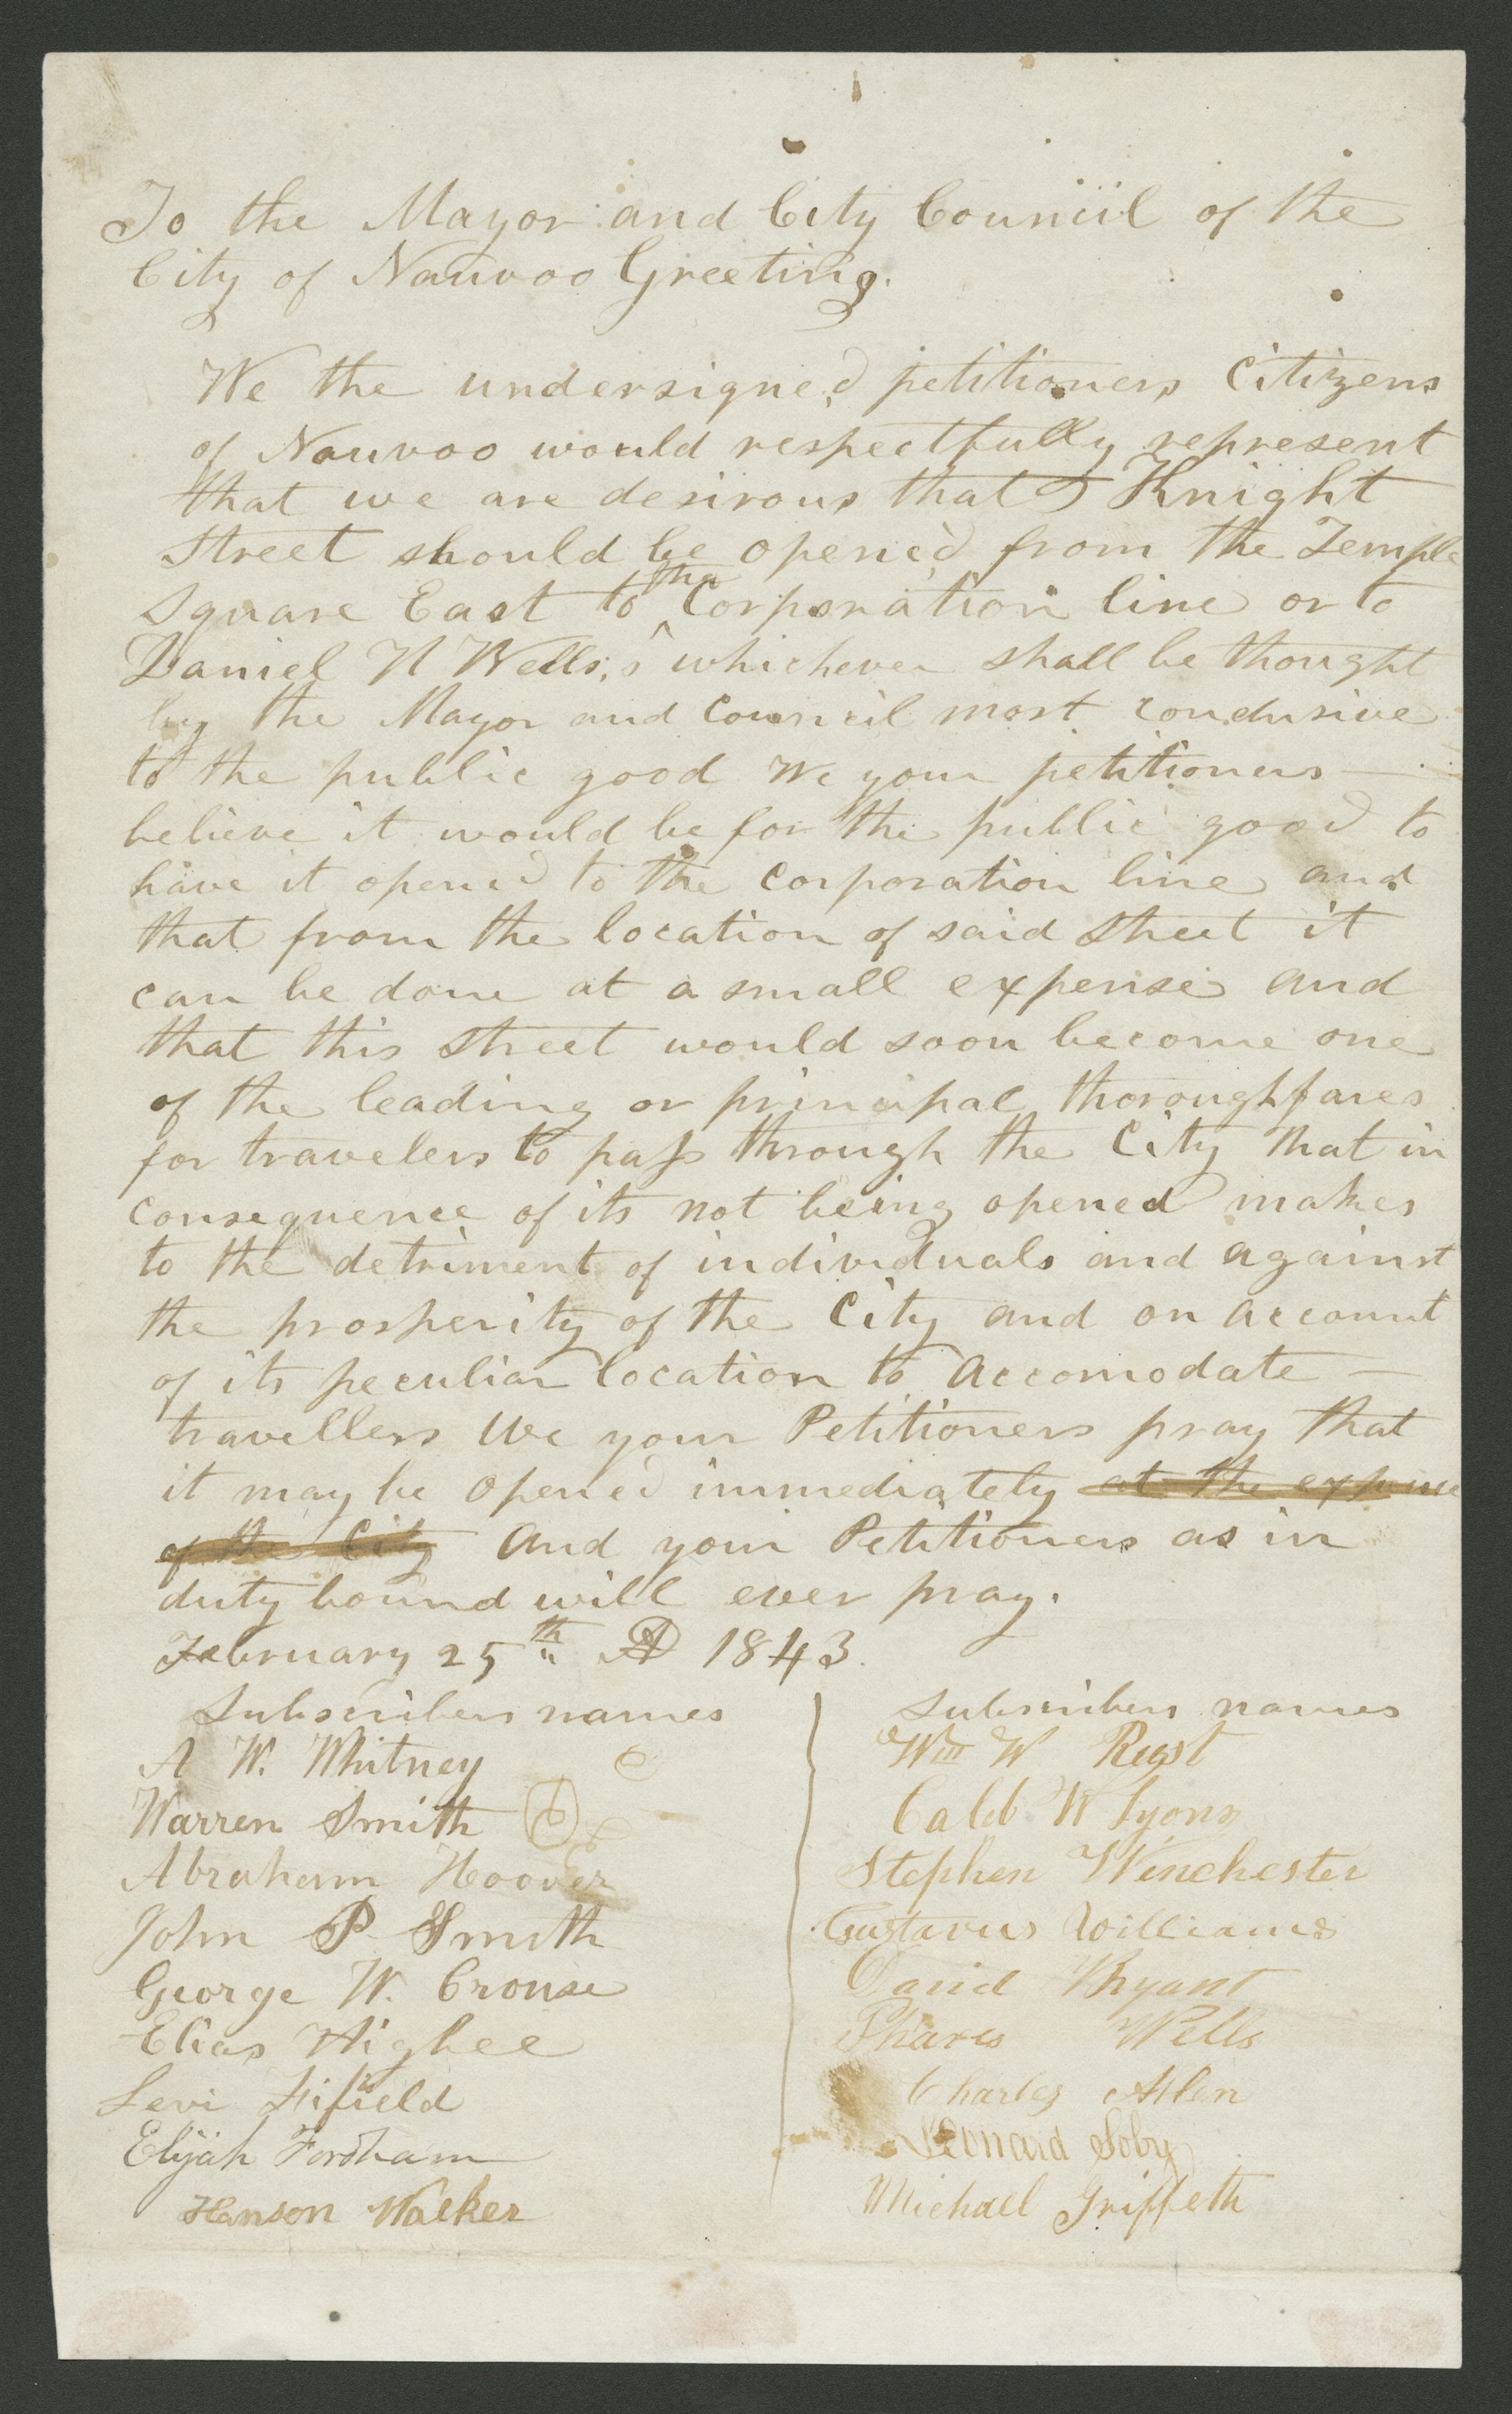 To the Mayor and City Council of the
City of Nauvoo Greeting.
We the undersigned petitioners Citizens
of Nauvoo would respectfully represent
that we are desirous that Knight
Street should be opened from the Temple
Square East to the Corporation line or to
Daniel H Wells,s whichever shall be thought
by the Mayor and Council most condusive
to the public good We your petitioners —
believe it would be for the public good to
have it opened to the Corporation line and
that from the location of said Street it
can be done at a small expense and
that this Street would soon become one
of the leading or principal thoroughfares
for travelers to pass through the City that in
consequence of its not being opened makes
to the detriment of individuals and against
the prosperity of the City and on account
of its peculiar location to accomodate —
travellers We your Petitioners pray that
it may be opened immediately at the expense
of the City and your Petitioners as in
duty bound will ever pray.
February 25th AD 1843.
Subscribers names
A W. Whitney
Warren Smith
Abraham Hoover
John P Smith
George W. Crouse
Elias Higbee
Levi Fifield
Elijah Fordham
Hanson Walker
Subscribers names
Wm W Rust
Caleb W Lyons
Stephen Winchester
Gustavus Williams
David Bryant
Phares Wells
Charles Allen
Leonard Soby
Michael Griffeth